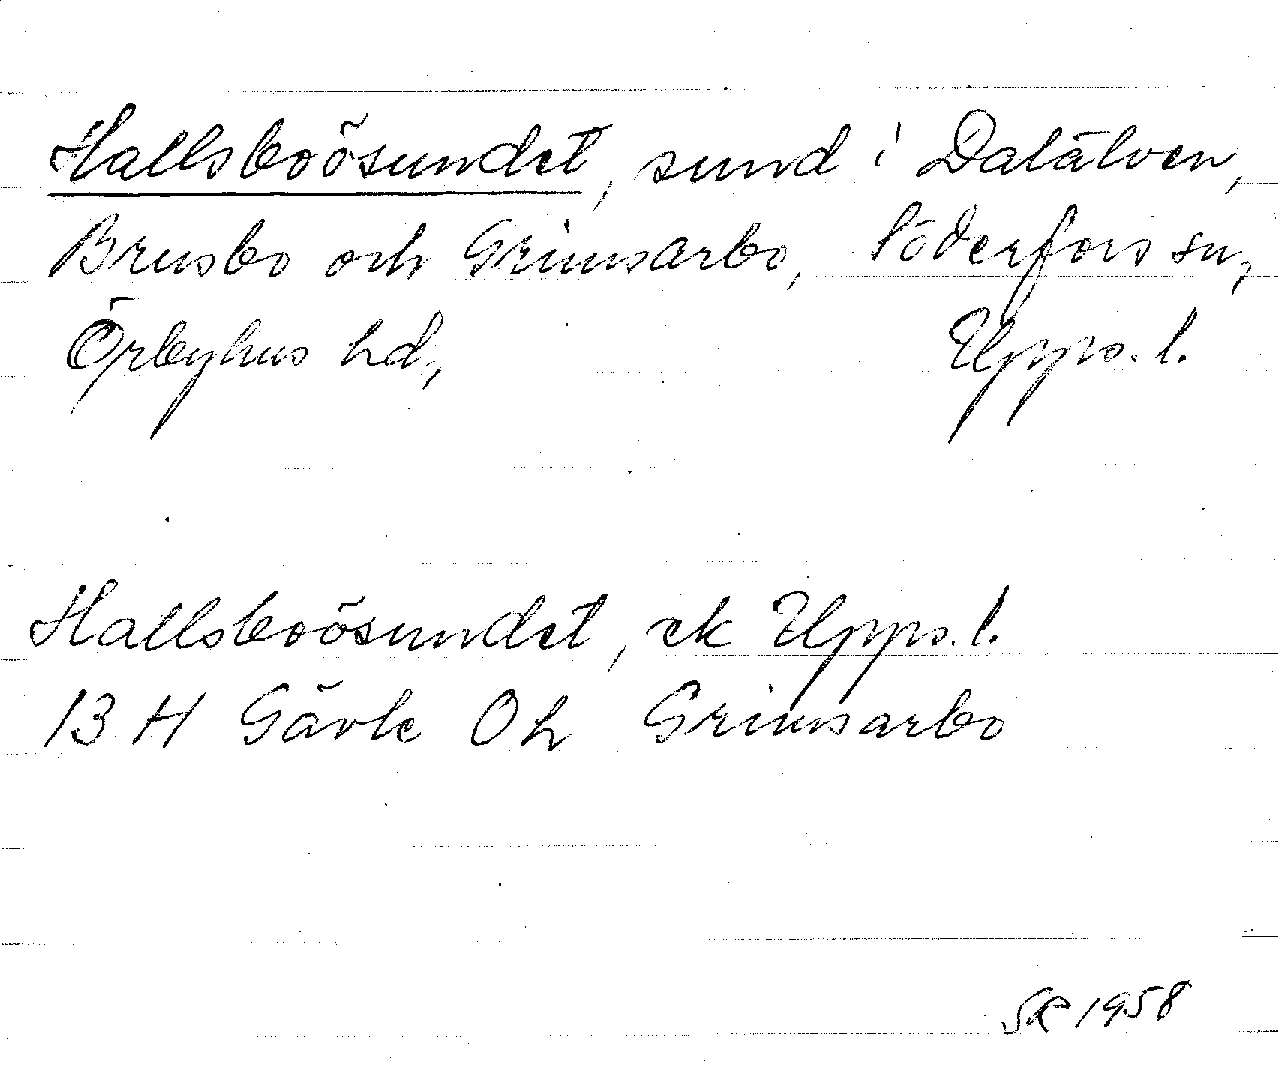 Hallsboösundet, sund i Dalälven,
Brusbo och Grimsarbo, Söderfors sn,
Örbyhus hd, Upps. l.
Hallsboösundet, ek Upps. l.
13 H Gävle Oh Grimsarbo
SR 1958